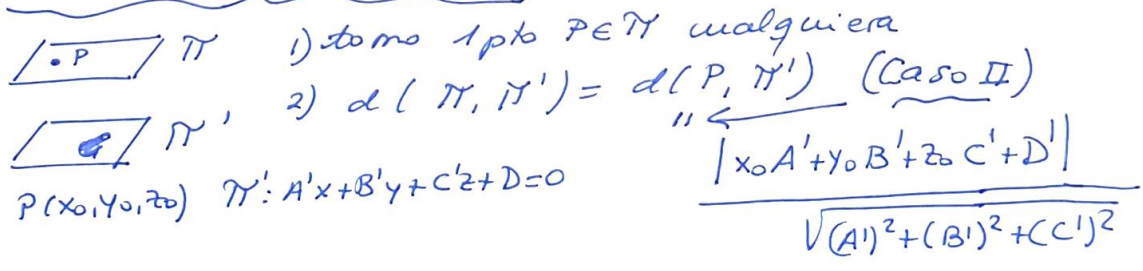 .P π 1) tomo 1 pto P∈π cualquiera
π' 2) d(π, π') = d(P, π') (Caso II)
P(x₀,y₀,z₀) π': A'x+B'y+C'z+D=0 " |x₀A'+y₀B'+z₀C'+D'|
√(A')²+(B')²+(C')²